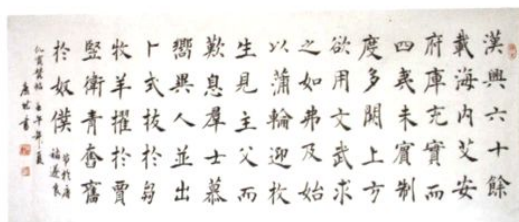 漢興六十餘
載海内艾安
府庫充實而
四夷未賓制
度多闕上方
欲用文武求
之如弗及始
以蒲輪迎枚
生見主父而
歎息羣士慕
嚮異人並出
卜式拔於芻
牧羊擢於賈
豎衛青奮舊
於奴僕
褚遂良
倪寬贊帖
書